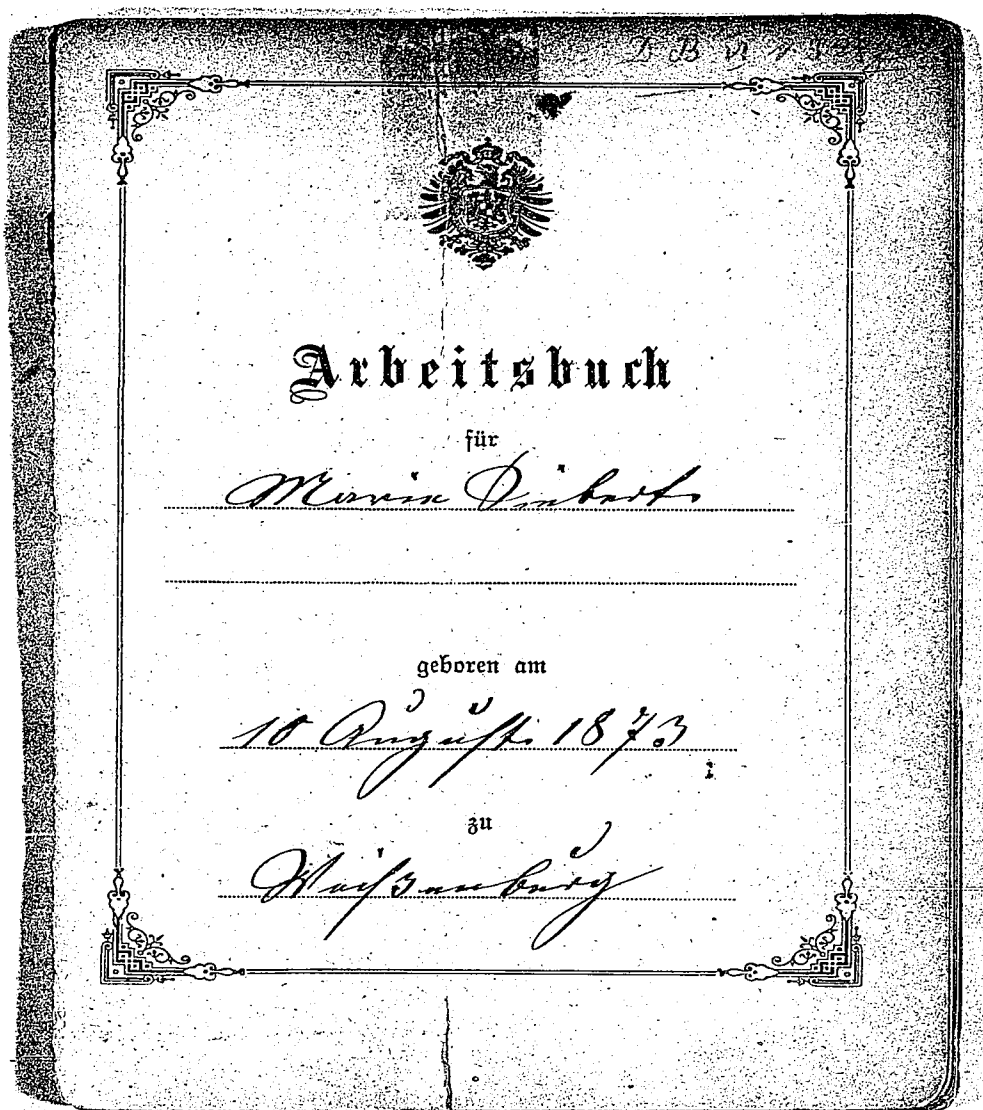 Arbeitsbuch
für
Marie Siebert
geboren am
10 August 1873
zu
Weißenburg